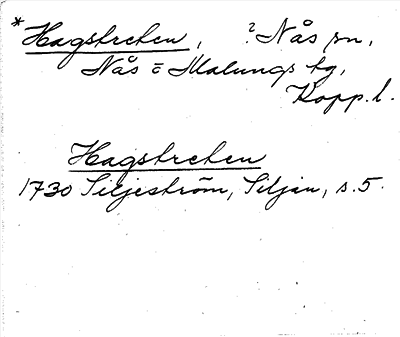 * Hagstreten, ? Nås sn,
Nås o Malungs tg,
Kopp. l.
Hagstreten
1730 Siljeström, Siljan, s. 5.